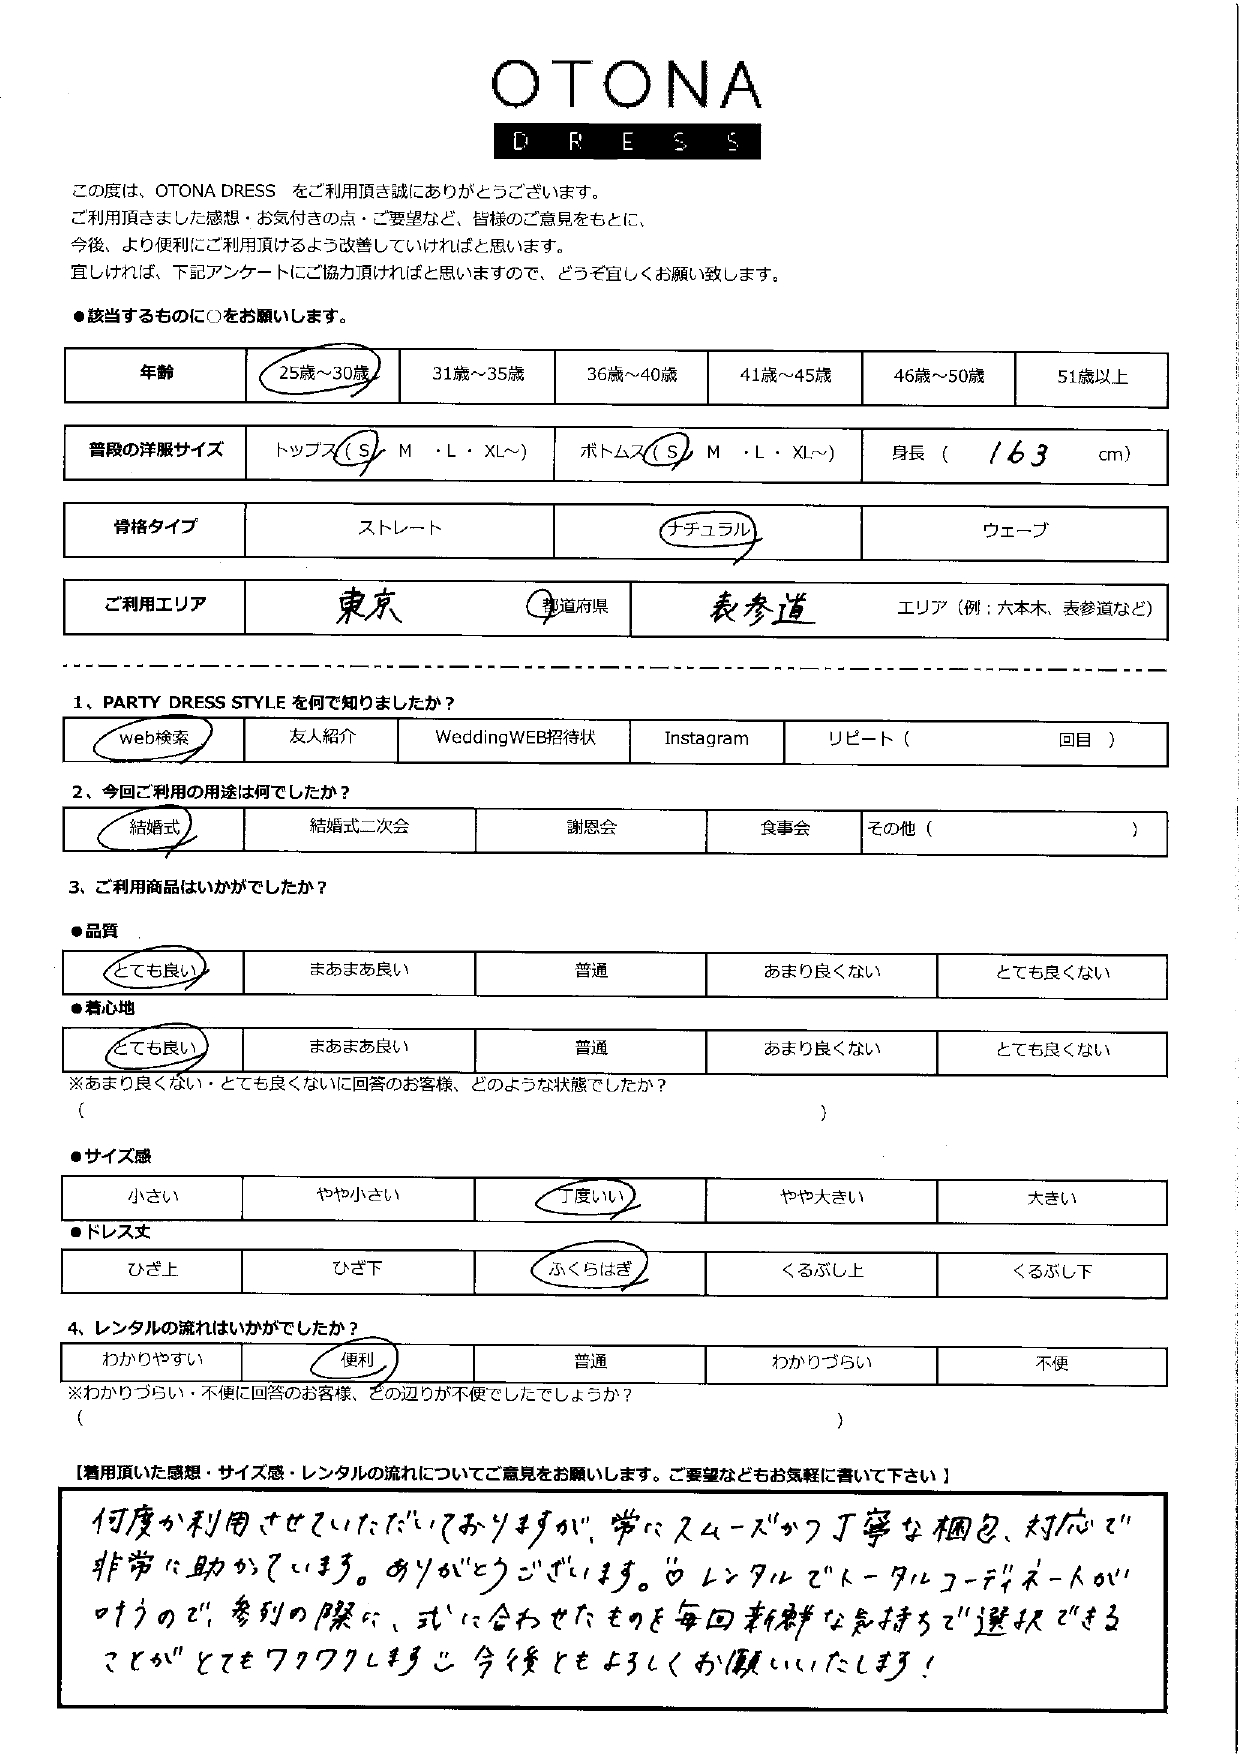 OTONA
DRESS
この度は、OTONA DRESS　をご利用頂き誠にありがとうございます。
ご利用頂きました感想・お気付きの点・ご要望など、皆様のご意見をもとに、
今後、より便利にご利用頂けるよう改善していければと思います。
宜しければ、下記アンケートにご協力頂ければと思いますので、どうぞ宜しくお願い致します。
●該当するものに○をお願いします。
年齢 25歳～30歳 31歳～35歳 36歳～40歳 41歳～45歳 46歳～50歳 51歳以上
普段の洋服サイズ トップス（ S ・ M ・L ・ XL～） ボトムス（ S ・ M ・L ・ XL～） 身長（ 163 cm）
骨格タイプ ストレート ナチュラル ウェーブ
ご利用エリア 東京 都道府県 表参道 エリア（例；六本木、表参道など）
1、PARTY DRESS STYLE を何で知りましたか？
web検索 友人紹介 WeddingWEB招待状 Instagram リピート（ 回目 ）
2、今回ご利用の用途は何でしたか？
結婚式 結婚式二次会 謝恩会 食事会 その他（ ）
3、ご利用商品はいかがでしたか？
●品質
とても良い まあまあ良い 普通 あまり良くない とても良くない
●着心地
とても良い まあまあ良い 普通 あまり良くない とても良くない
※あまり良くない・とても良くないに回答のお客様、どのような状態でしたか？
（ ）
●サイズ感
小さい やや小さい 丁度いい やや大きい 大きい
●ドレス丈
ひざ上 ひざ下 ふくらはぎ くるぶし上 くるぶし下
4、レンタルの流れはいかがでしたか？
わかりやすい 便利 普通 わかりづらい 不便
※わかりづらい・不便に回答のお客様、どの辺りが不便でしたでしょうか？
（ ）
【着用頂いた感想・サイズ感・レンタルの流れについてご意見をお願いします。ご要望などもお気軽に書いて下さい 】
何度か利用させていただいておりますが、常にスムーズかつ丁寧な梱包、対応で
非常に助かっています。ありがとうございます。レンタルでトータルコーディネートが
叶うので、参列の際に、式に合わせたものを毎回新鮮な気持ちで選択できる
ことがとてもワクワクします 今後ともよろしくお願いいたします！